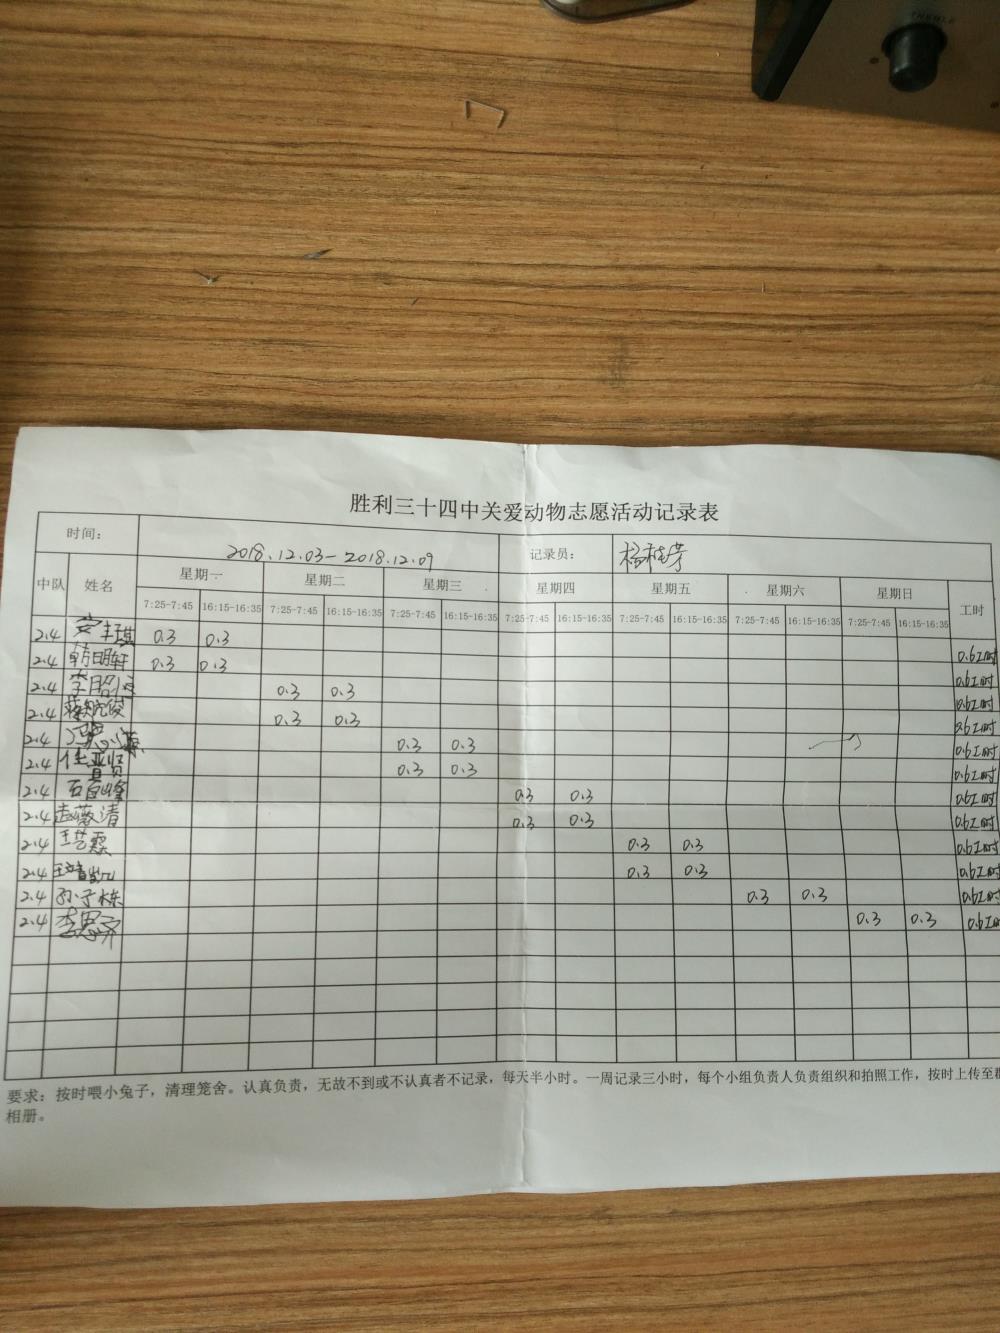 胜利三十四中关爱动物志愿活动记录表
时间： 2018.12.03-2018.12.09 记录员： 杨桂芳
中队 姓名 星期一 星期二 星期三 星期四 星期五 星期六 星期日 工时
7:25-7:45 16:15-16:35 7:25-7:45 16:15-16:35 7:25-7:45 16:15-16:35 7:25-7:45 16:15-16:35 7:25-7:45 16:15-16:35 7:25-7:45 16:15-16:35 7:25-7:45 16:15-16:35
2.4 安 0.3 0.3 0.6工时
2.4 韩明轩 0.3 0.3 0.6工时
2.4 李昭恒 0.3 0.3 0.6工时
2.4 0.3 0.3 0.6工时
2.4 0.3 0.3 0.6工时
2.4 任亚贤 0.3 0.3 0.6工时
2.4 石自峰 0.3 0.3 0.6工时
2.4 赵薇清 0.3 0.3 0.6工时
2.4 王艺霖 0.3 0.3 0.6工时
2.4 王 0.3 0.3 0.6工时
2.4 孙子栋 0.3 0.3 0.6工时
2.4 李思齐 0.3 0.3 0.6工时
要求：按时喂小兔子，清理笼舍。认真负责，无故不到或不认真者不记录，每天半小时。一周记录三小时，每个小组负责人负责组织和拍照工作，按时上传至群
相册。